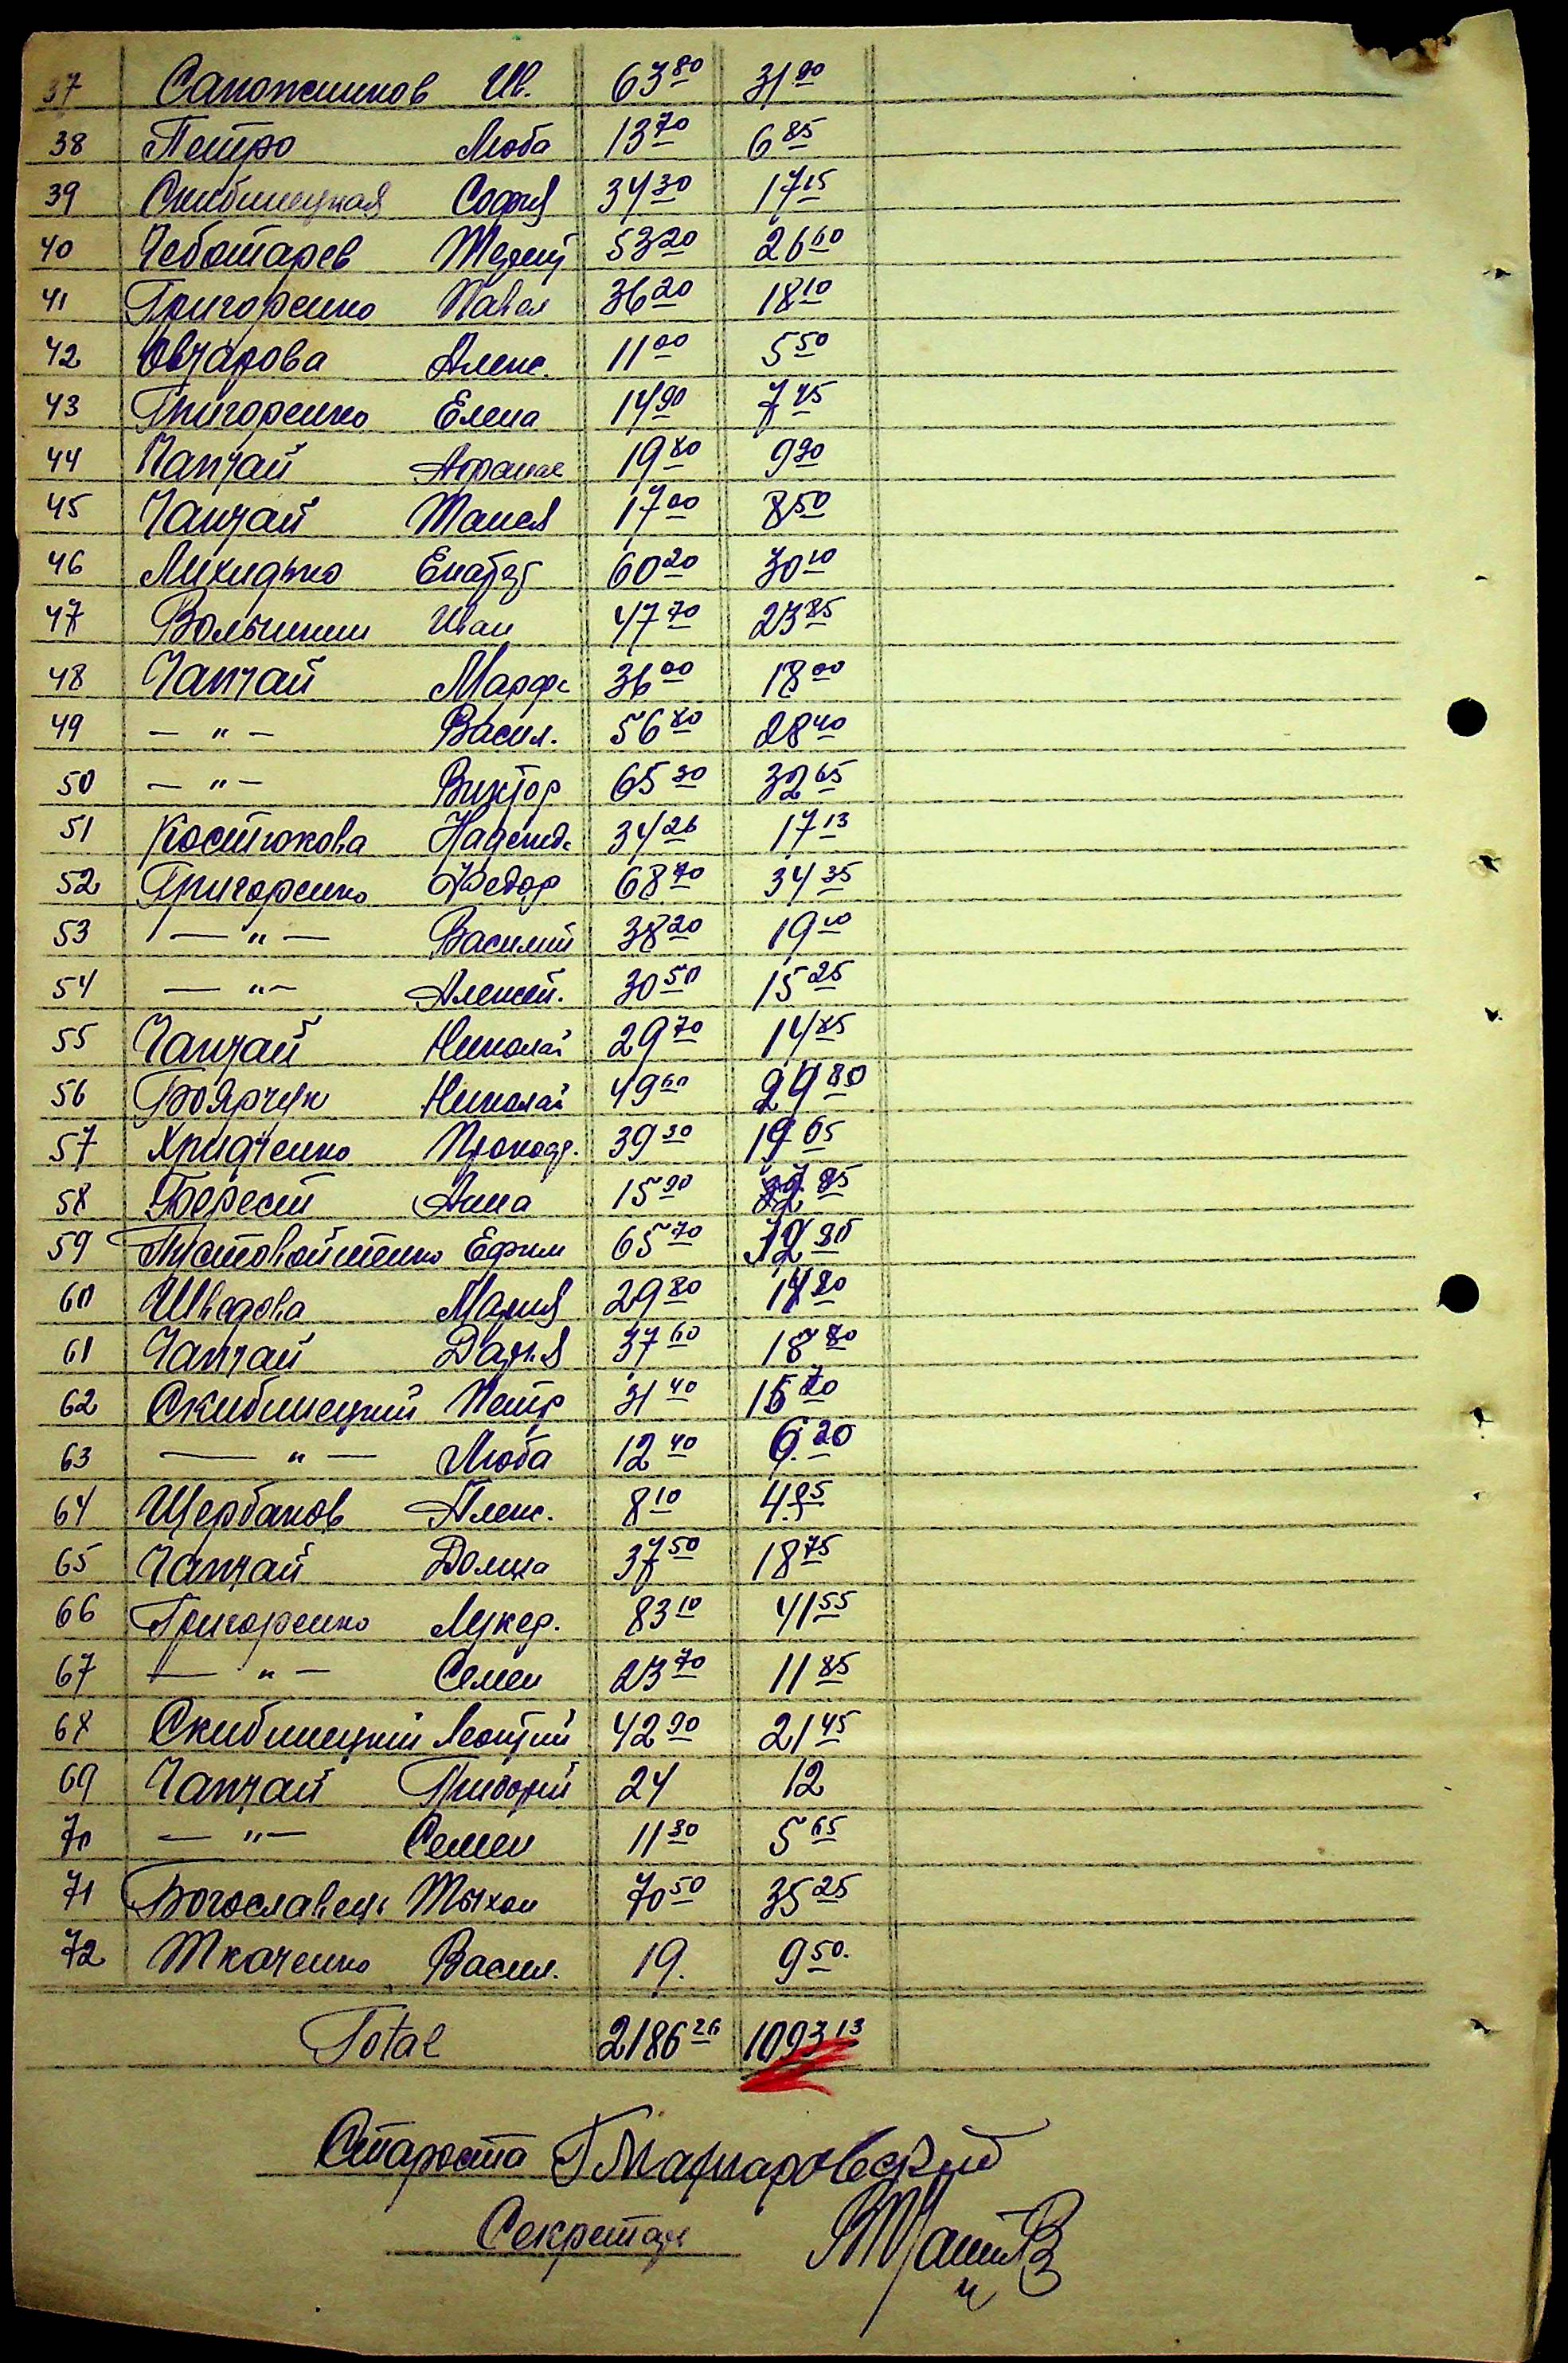 37 Сапожников Ив. 63 80 31 90
38 Петро Люба 13 70 6 85
39 Скибинецкая София 34 30 17 15
40 Чеботарев 53 20 26 60
41 Григоренко Павел 36 20 18 10
42 Овчарова Алекс. 11 00 5 50
43 Григоренко Елена 14 90 7 45
44 Чапчай Афанас 19 80 9 90
45 Чапчай Танся 17 00 8 50
46 60 20 30 10
47 Иван 47 70 23 85
48 Чапчай Марфа 36 00 18 00
49 — " — Васил. 56 80 28 40
50 — " — Виктор 65 30 32 65
51 Костюкова Надежд. 34 26 17 13
52 Григоренко Федор 68 70 34 35
53 — " — Василий 38 20 19 10
54 — " — Алексей. 30 50 15 25
55 Чапчай Николай 29 70 14 85
56 Боярчук Николай 49 60 24 80
57 Хридченко Прокоф. 39 30 19 65
58 Берест Анна 15 90
59 Ефим 65 70
60 Шведова Мария 29 80 14 90
61 Чапчай Дария 37 60 18 80
62 Скибинецкий Петр 31 40 15 70
63 — " — Люба 12 40 6.20
64 Щербаков Алекс. 8 10
65 Чапчай Домна 37 50 18 75
66 Григоренко Лукер. 83 10 41 55
67 — " — Семен 23 70 11 85
68 Скибинецкий Леонтий 42 90 21 45
69 Чапчай Григорий 24 12
70 — " — Семен 11 30 5 65
71 Богославец Тыхон 70 50 35 25
72 Ткаченко Васил. 19. 9 50.
Total 2186 26 1093 13
Староста
Секретарь